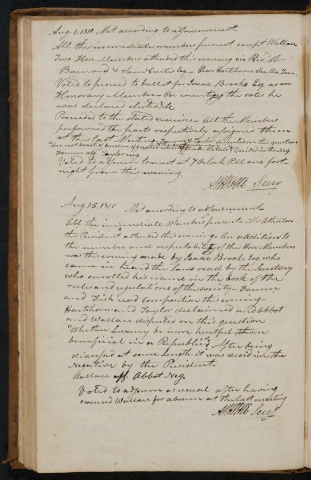 Aug. 1, 1810 Met according to adjournment
All the immediate members present except Wallace
Two Hon. Members attended this evening viz Revd Mr.
Barnard &
Voted to proceed to ballot for Isaac Brooks Esq. as an
Honorary Member. On counting the votes he
was declared elected &c
Proceeded to the stated exercises. All the Members
performed the parts respectively assigned them
at the last meeting.
Voted to adjourn to meet at 7 o'clock P.M. one fort
night from this evening
Secry
Aug. 15, 1810 Met according to adjournment
All the immediate Members present.
the President attended this evening. An addition to
the number and respectability of the Hon. Members
was this evening made by Isaac Brooks Esq. who
came in heard the Laws read by the Secretary
who enrolled his name in the book of the
rules and regulations of the society.
and read Composition this evening.
Hartshorn and Taylor declaimed and Abbot
and Wallace disputed on this question
"Whether Luxury be more hurtful than
beneficial in a Republic?" After being
discussed at some length it was decided in the
Negative by the President.
Wallace aff Abbot Neg.
Voted to adjourn as usual after having
excused Wallace for absence at the last meeting
Secry